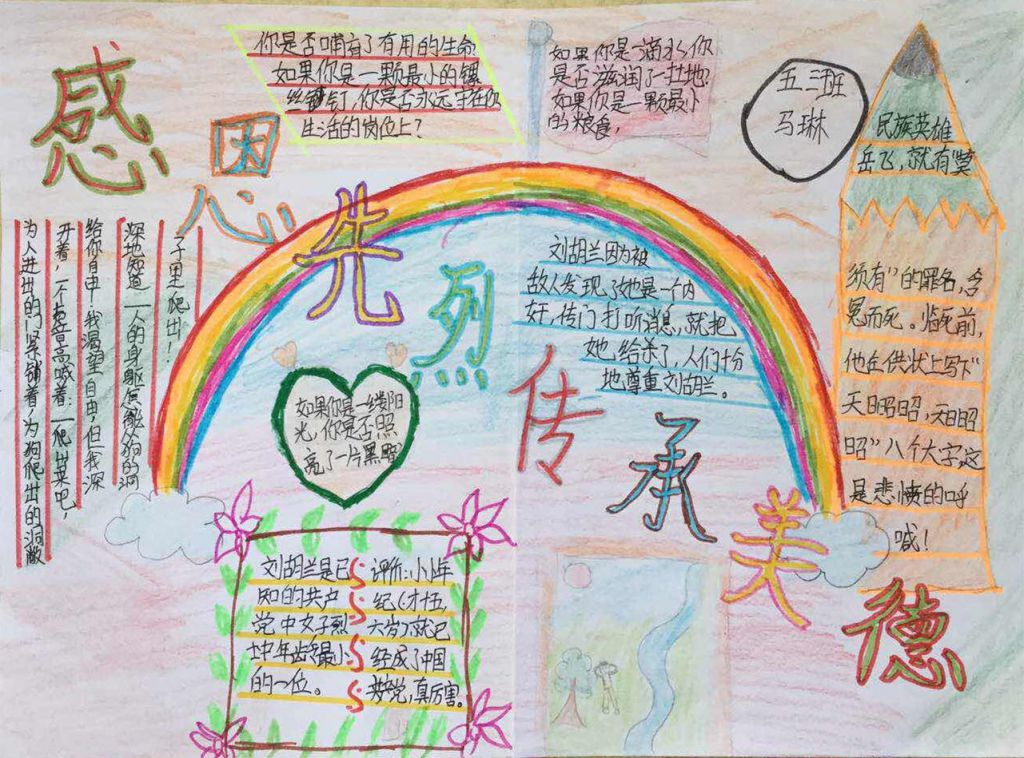 感恩先烈传承美德
你是否哺育了有用的生命
如果你是一颗最小的螺
丝钉,你是否永远守在你
生活的岗位上?
如果你是一滴水,你
是否滋润了一片土地?
如果你是一颗最小
的粮食,
五三班
马琳
民族英雄
岳飞,就有"莫
须有"的罪名,含
冤而死。临死前,
他在供状上写下"
天日昭昭,天日昭
昭"八个大字,这
是悲愤的呼
喊!
为人进出的门紧锁着,为狗爬出的洞敞
开着,一个声音高喊着:一爬出来吧,
给你自由!我渴望自由,但我深
深地知道——人的身躯怎能从狗的洞
子里爬出!
刘胡兰因为被
敌人发现了她是一个内
奸,传门打听消息,就把
她给杀了,人们十分
地尊重刘胡兰。
如果你是一缕阳
光,你是否照
亮了一片黑暗
刘胡兰是已
知的共产
党中女子烈
士中年龄最小
的一位。
评价:小小年
纪(才十五,
六岁)就已
经成了中国
共党,真厉害。